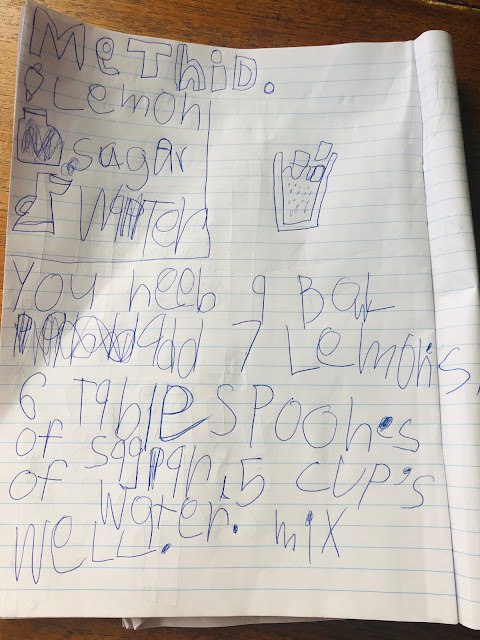 MeThiD.
Lemon
sagar
WATTer
You need 9 Bal
add 7 Lemon's,
6 Table spoones
of sagar, 5 cup's
of water. mix
well.